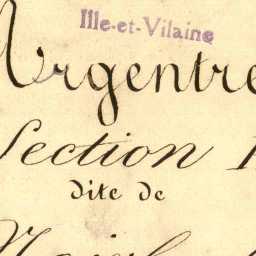 Ille-et-Vilaine
Argentré
Section
dite de